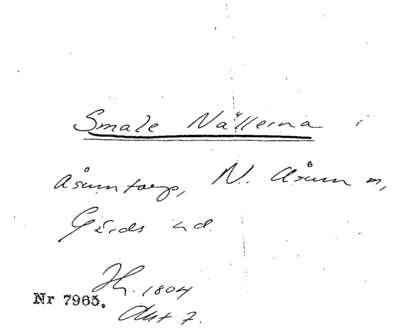 Smale Nällerna i
Åsumtorp, N. Åsum sn,
Gärds hd.
Sk. 1804
Nr 7965.
Akt 7.